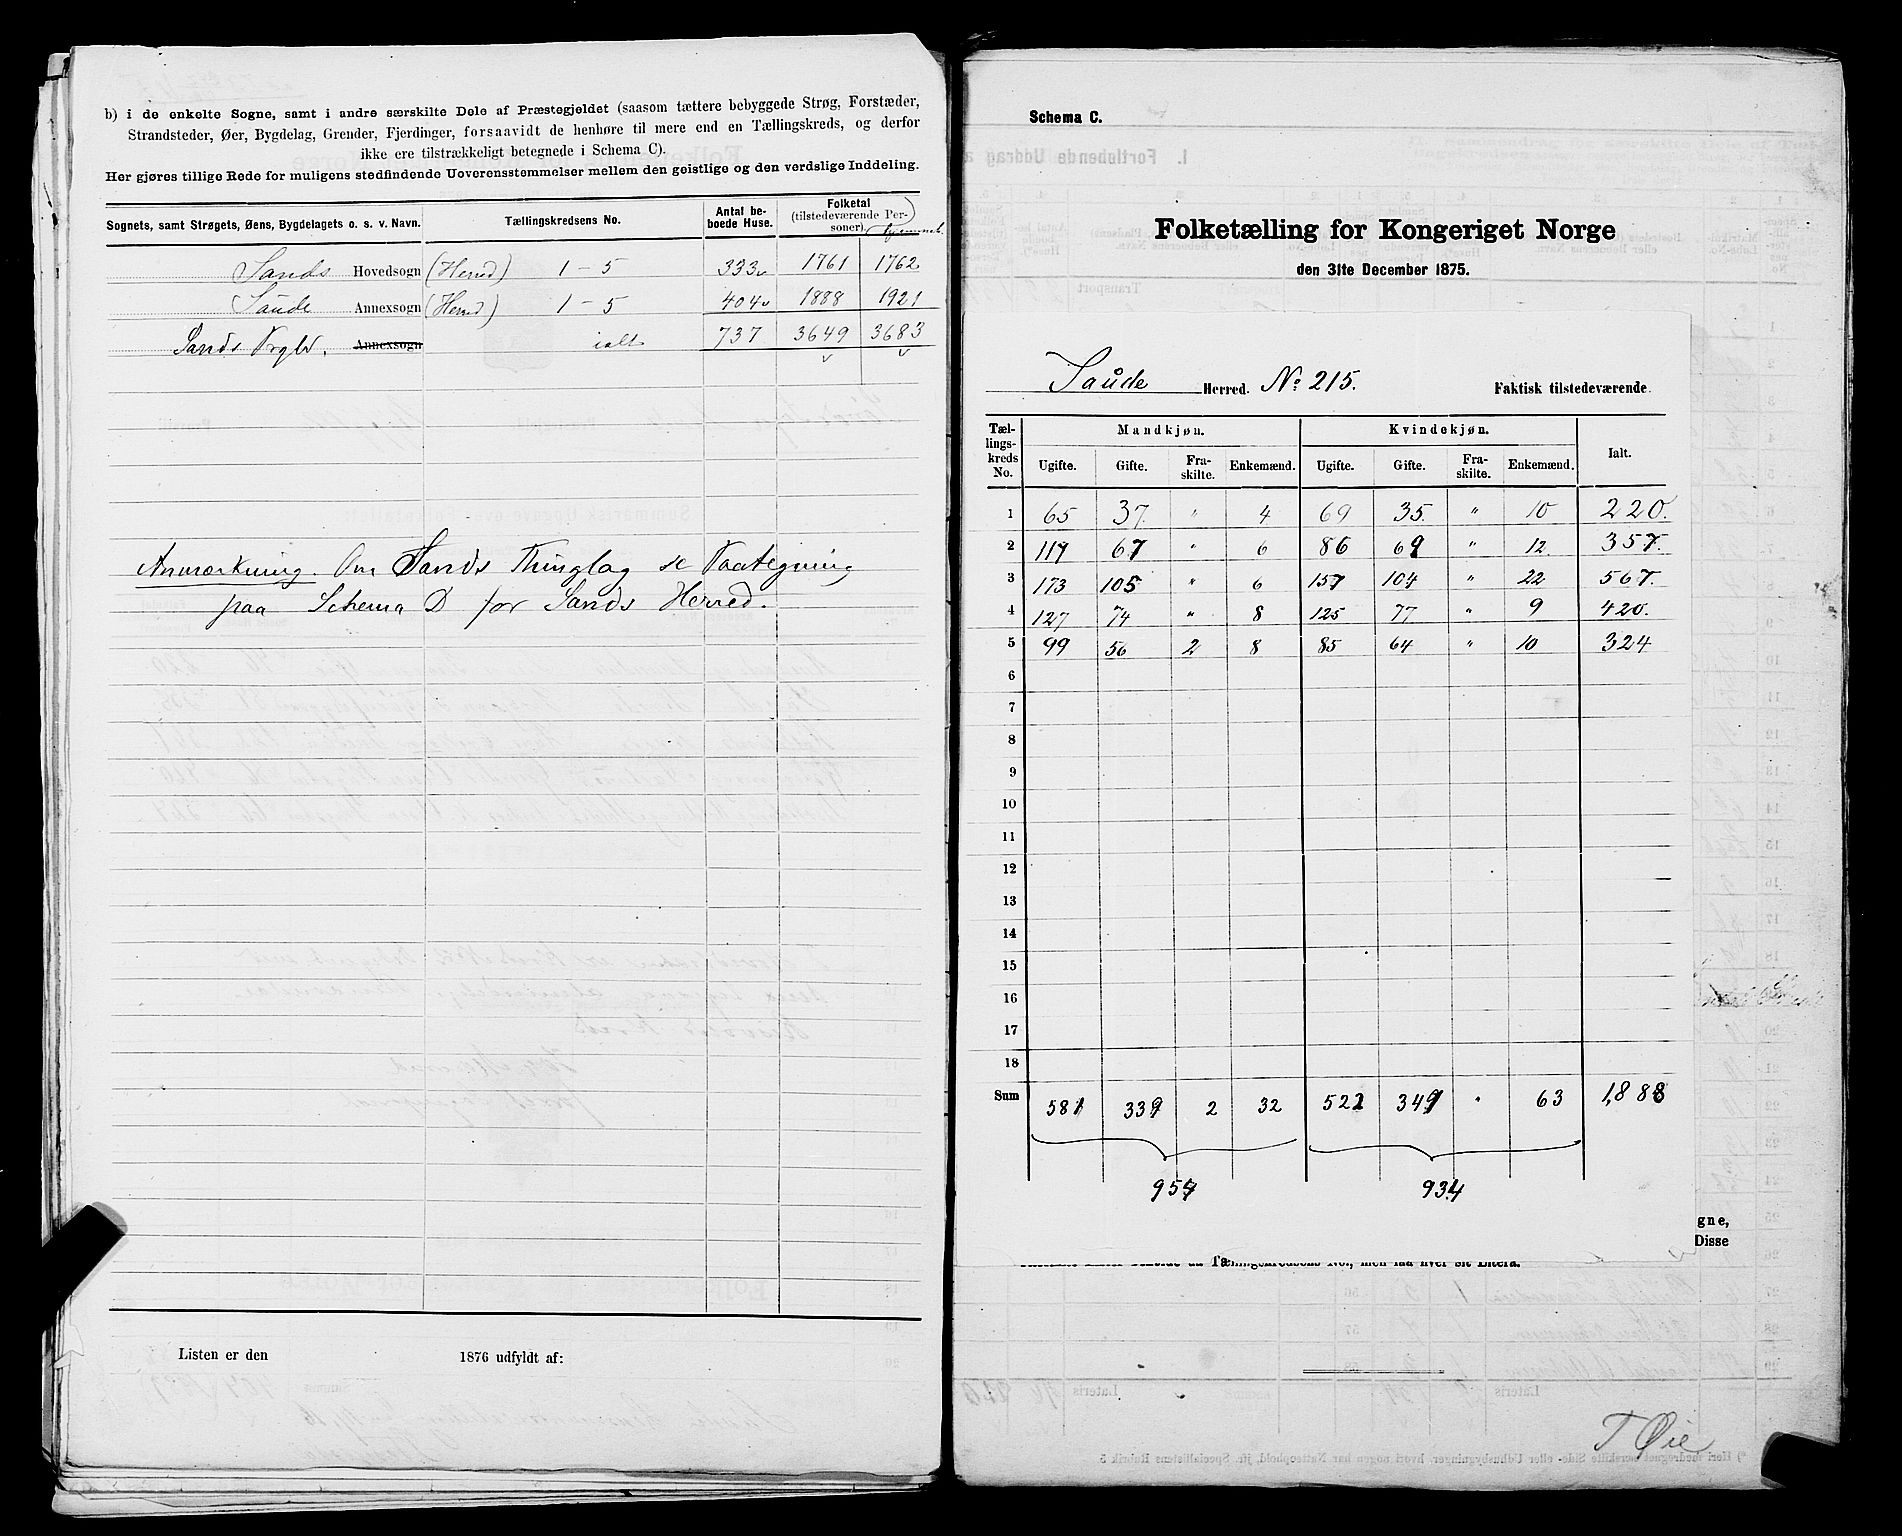 b) i de enkelte Sogne, samt i andre særskilte Dele af Præstegjeldet (saasom tættere bebyggede Strøg, Forstæder,
Strandsteder, Øer, Bygdelag, Grender, Fjerdinger, forsaavidt de henhøre til mere end en Tællingskreds, og derfor
ikke ere tilstrækkeligt betegnede i Schema C).
Her gjøres tillige Rede for muligens stedfindende Uoverensstemmelser mellem den geistlige og den verdslige Inddeling.
Sognets, samt Strøgets, Øens, Bygdelagets o. s. v. Navn. Tællingskredsens No. Antal beboede Huse. Folketal (tilstedeværende Personer).
Sands Hovedsogn (Herred) 1 - 5 333 1761 1762
Saude Annexsogn (Herred) 1 - 5 404 1888 1921
Sands Prgld. Annexsogn ialt 737 3649 3683
Anmærkning. Om Sands Thinglag se Paategning
paa Schema D for Sands Herred.
Listen er den 1876 udfyldt af:
Schema C.
Folketælling for Kongeriget Norge
den 31te December 1875.
Saude Herred. No 215. Faktisk tilstedeværende.
Tællingskreds No. Mandkjøn. Kvindekjøn. Ialt.
Ugifte. Gifte. Fraskilte. Enkemænd. Ugifte. Gifte. Fraskilte. Enkemænd.
1 65 37 " 4 69 35 " 10 220.
2 117 67 " 6 86 69 " 12 357.
3 173 105 " 6 157 104 " 22 567.
4 127 74 " 8 125 77 " 9 420.
5 99 56 2 8 85 64 " 10 324
6
7
8
9
10
11
12
13
14
15
16
17
18
Sum 581 339 2 32 522 349 " 63 1,888
954 934
gne,
Disse
Tællingskredsens No., men faa hver sit Litera.
T Øie